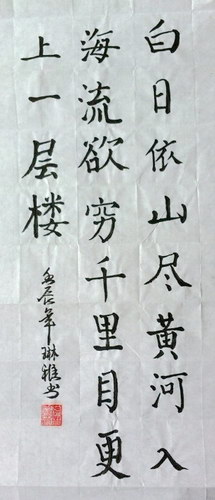 白日依山尽黄河入
海流欲穷千里目更
上一层楼
壬辰年琳雅书